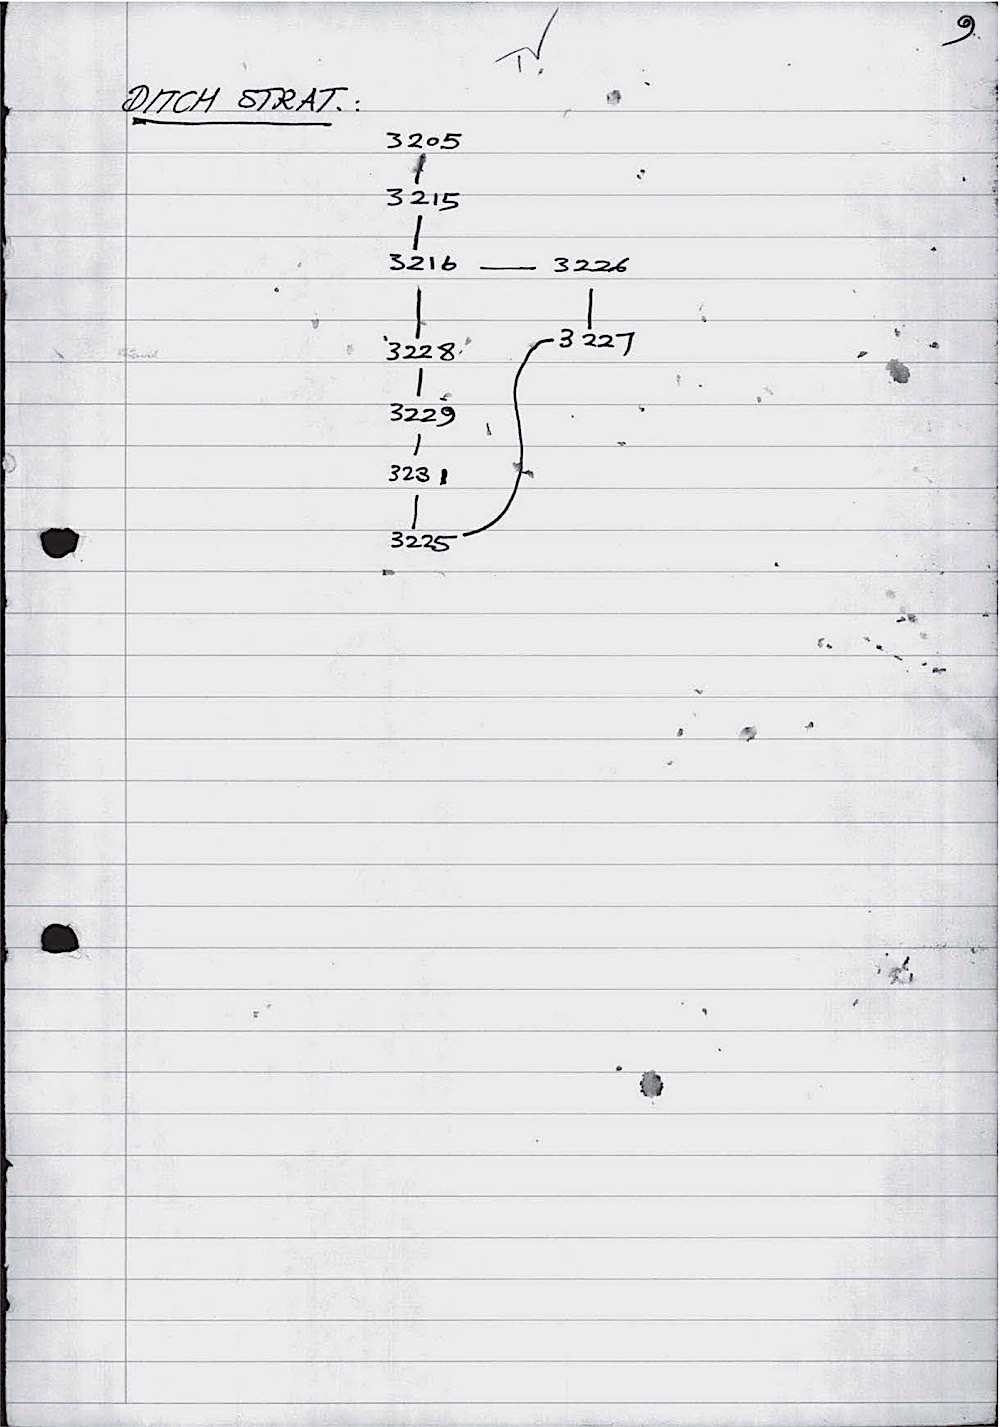 9
DITCH STRAT.:
3205
3215
3216 — 3226
3227
3228
3229
3231
3225